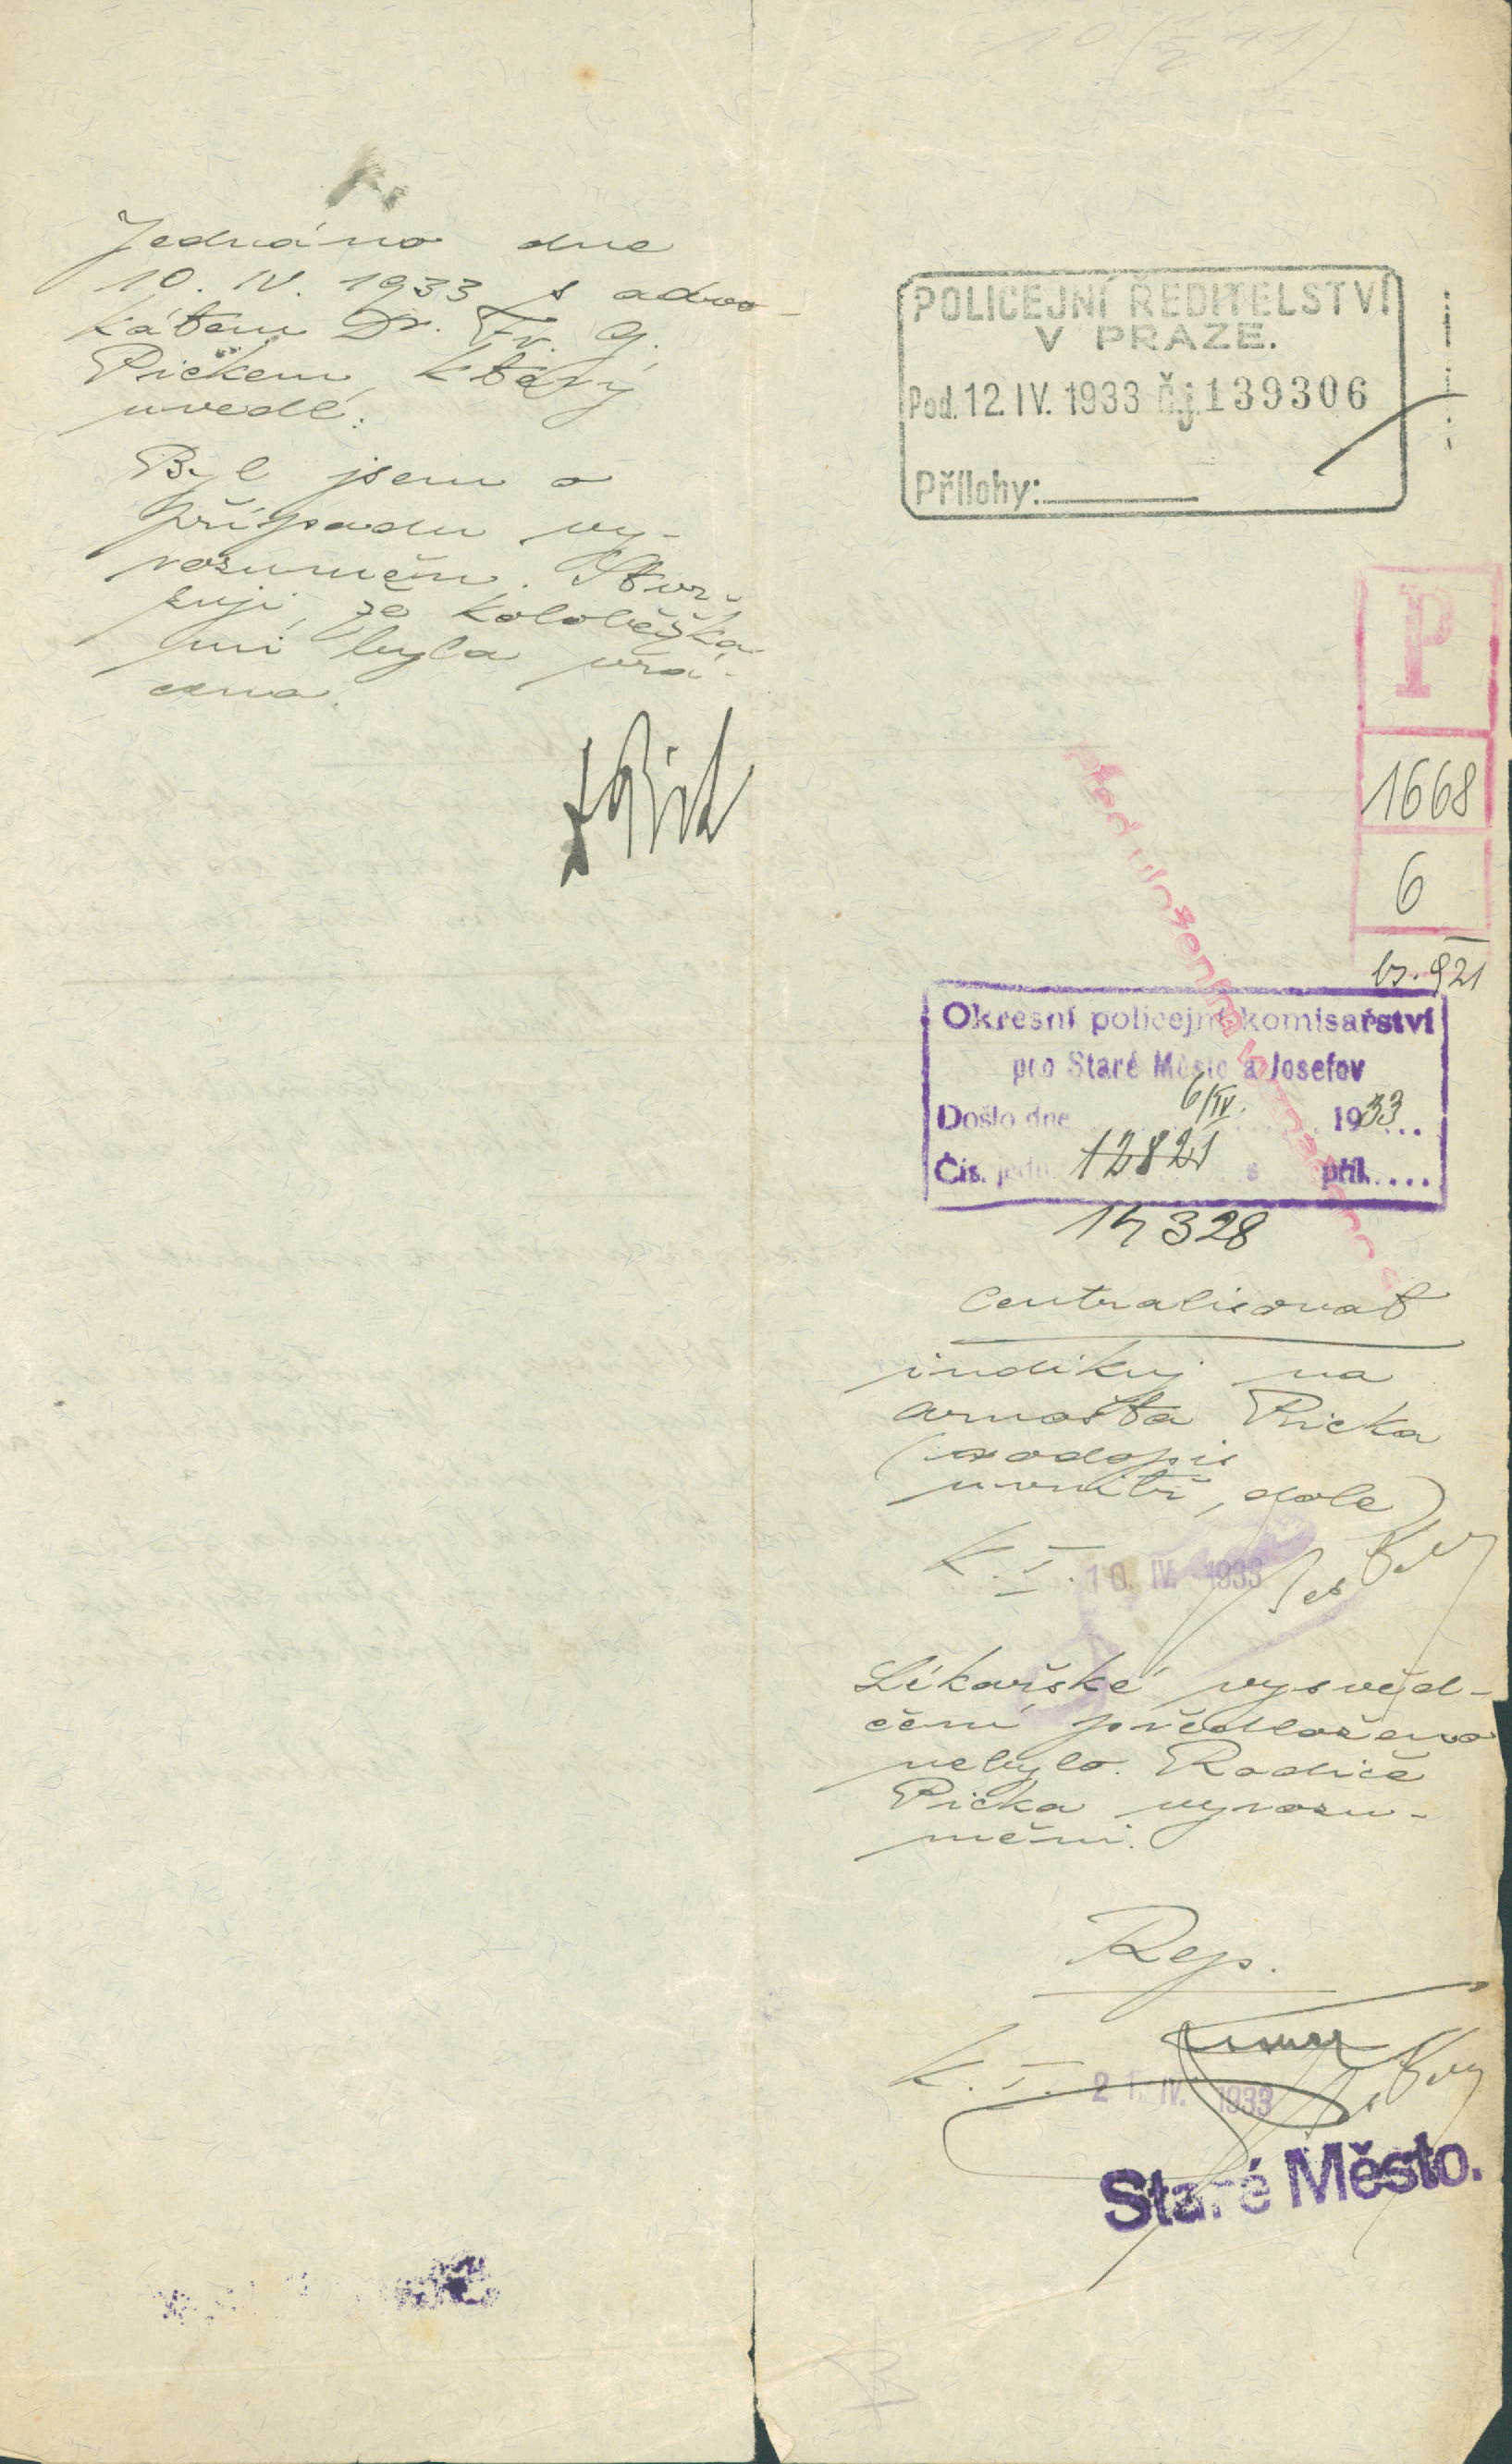 Jednáno dne
10. IV. 1933 s advo-
kátem Dr. Fr. G.
Pickem, který
uvedl:
Byl jsem o
případu vy-
rozuměn. Stvr-
zuji, že koloběžka
mi byla vrá-
cena.
POLICEJNÍ ŘEDITELSTVÍ
V PRAZE.
Pod. 12. IV. 1933 č.j. 139306
Přílohy:
P
1668
6
Okresní policejní komisařství
pro Staré Město a Josefov
Došlo dne 6/IV. 1933
Čís. jedn. 12821 s příl.
14328
Centralisovat
indikuj na
Arnošta Picka
(rodopis
uvnitř, dole)
K. I. 10. IV. 1933
Lékařské vysvěd-
čení předloženo
nebylo. Rodiče
Picka vyrozu-
měni.
Rep.
K. I. 21. IV. 1933
Staré Město.